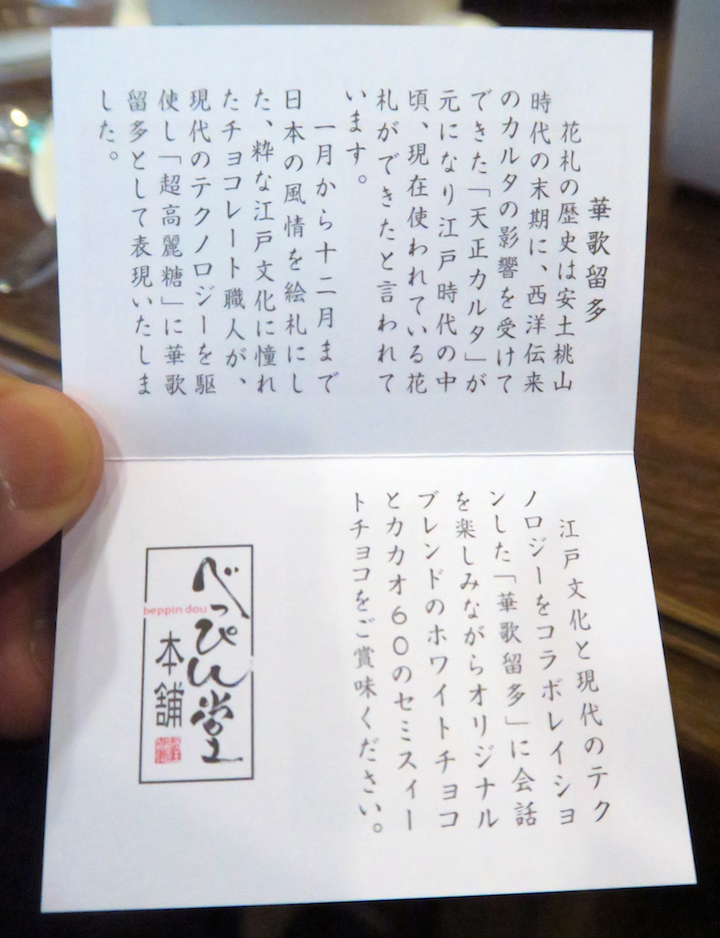 華歌留多
花札の歴史は安土桃山
時代の末期に、西洋伝来
のカルタの影響を受けて
できた「天正カルタ」が
元になり江戸時代の中
頃、現在使われている花
札ができたと言われて
います。
一月から十二月まで
日本の風情を絵札にし
た、粋な江戸文化に憧れ
たチョコレート職人が、
現代のテクノロジーを駆
使し「超高麗糖」に華歌
留多として表現いたしま
した。
江戸文化と現代のテク
ノロジーをコラボレイショ
ンした「華歌留多」に会話
を楽しみながらオリジナル
ブレンドのホワイトチョコ
とカカオ60のセミスィー
トチョコをご賞味ください。
べっぴん堂
beppin dou
本舗